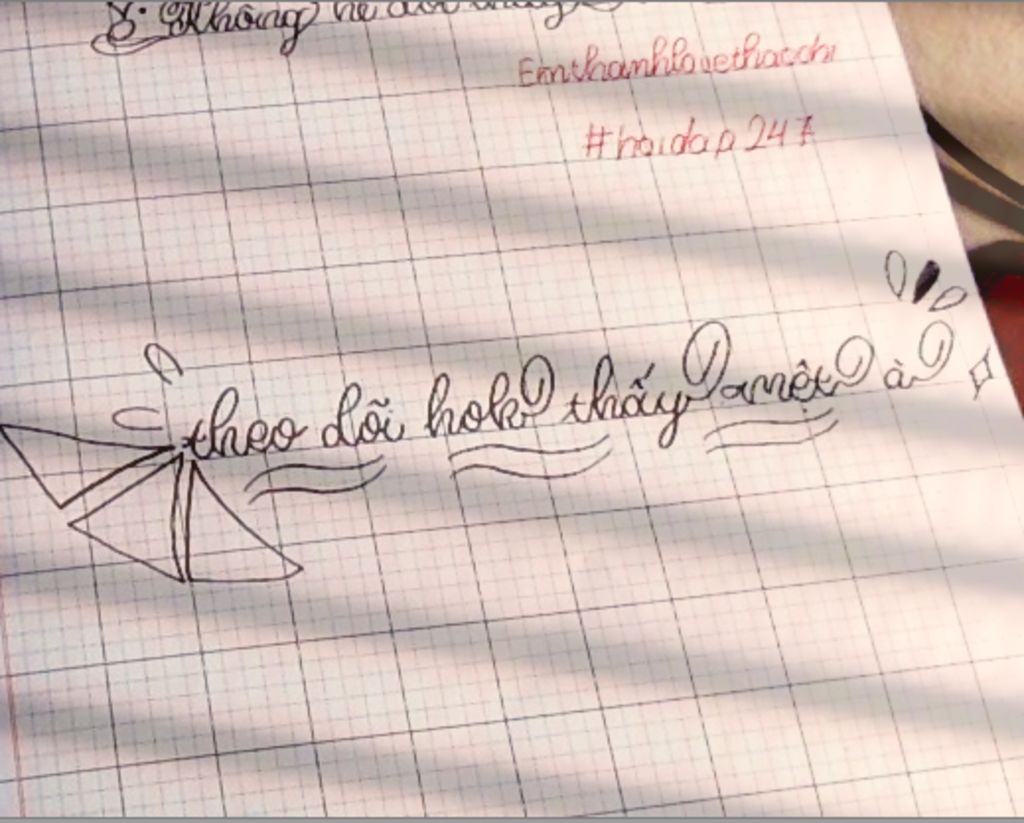 Không
Emthanhlovethacchi
#hoidap247
theo dõi hok thấy mệt à